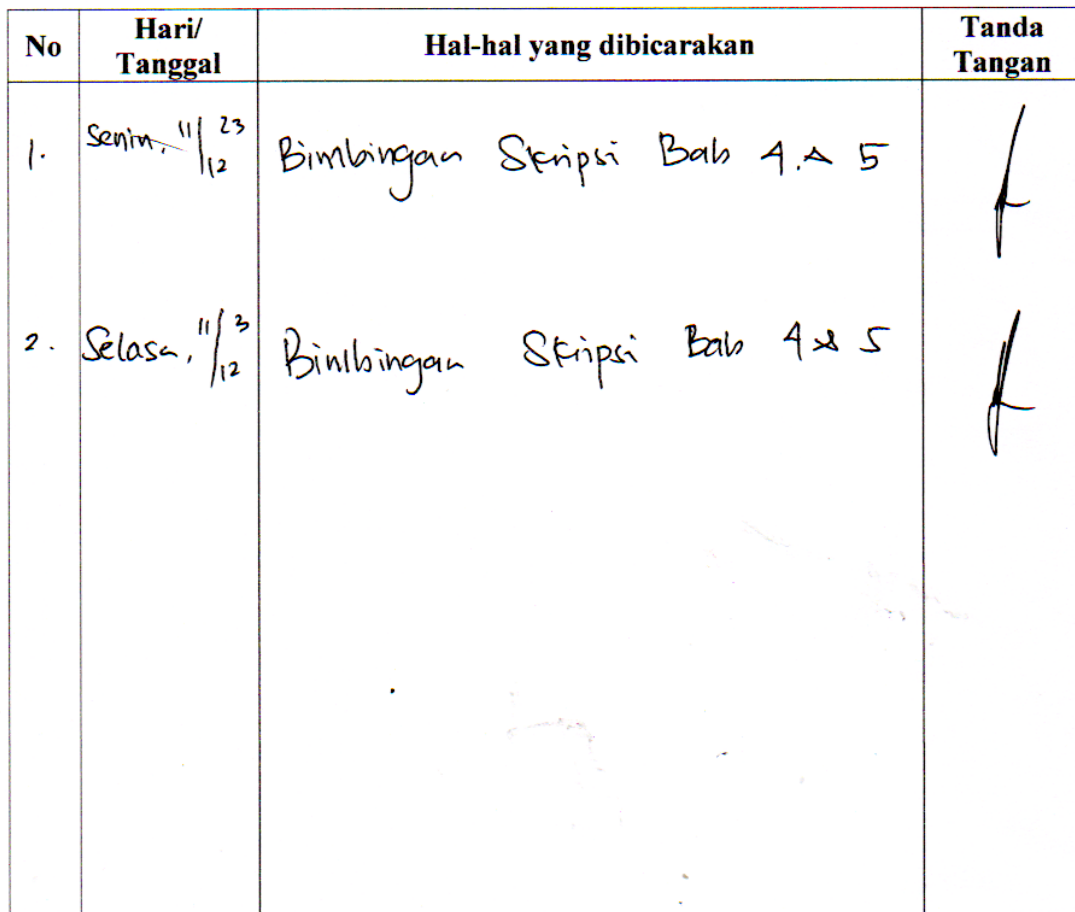 No Hari/ Tanggal Hal-hal yang dibicarakan Tanda Tangan
1. Senin, 11/12 23 Bimbingan Skripsi Bab 4 & 5
2. Selasa, 11/12 3 Bimbingan Skripsi Bab 4 & 5